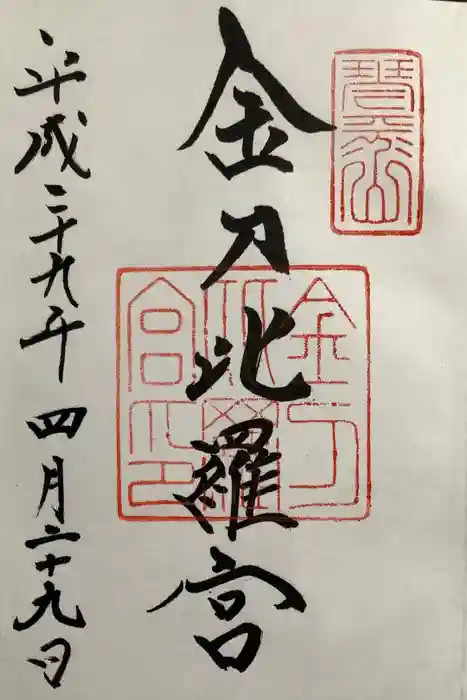 琴平山
金刀比羅宮
金刀比羅宮之印
平成二十九年四月二十九日